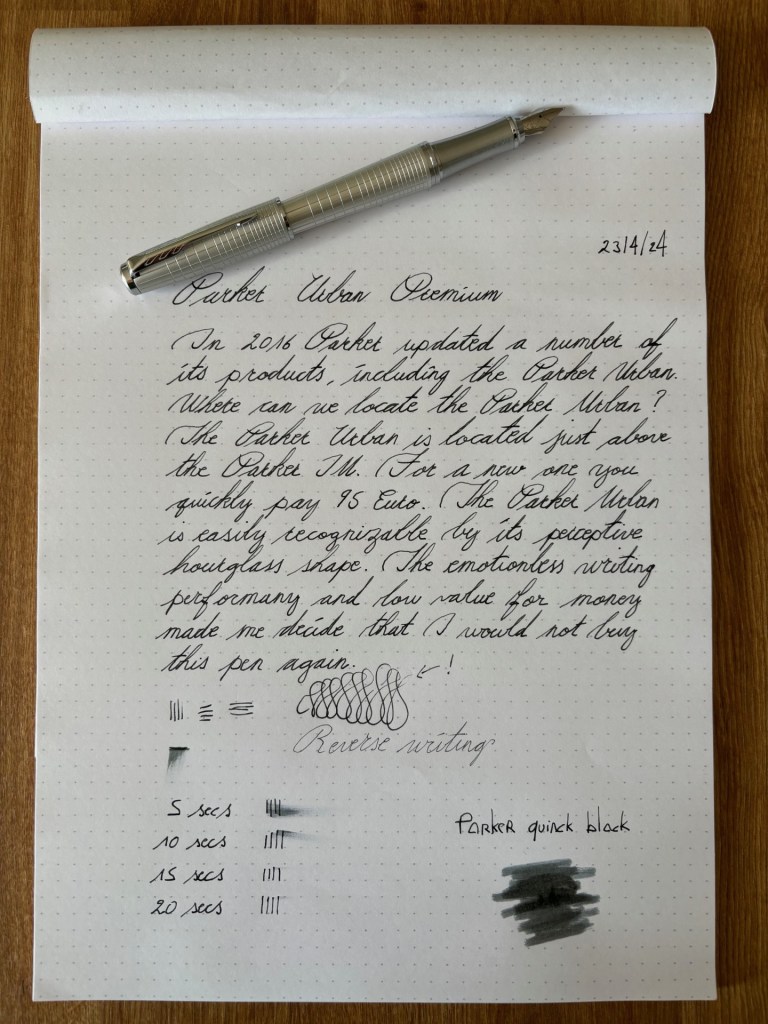 23/4/24
Parker Urban Premium
In 2016 Parker updated a number of
its products, including the Parker Urban.
Where can we locate the Parker Urban?
The Parker Urban is located just above
the Parker IM. For a new one you
quickly pay 95 Euro. The Parker Urban
is easily recognizable by its perceptive
hourglass shape. The emotionless writing
performany and low value for money
made me decide that I would not buy
this pen again.
!
Reverse writing
5 secs
10 secs
15 secs
20 secs
Parker quinck black